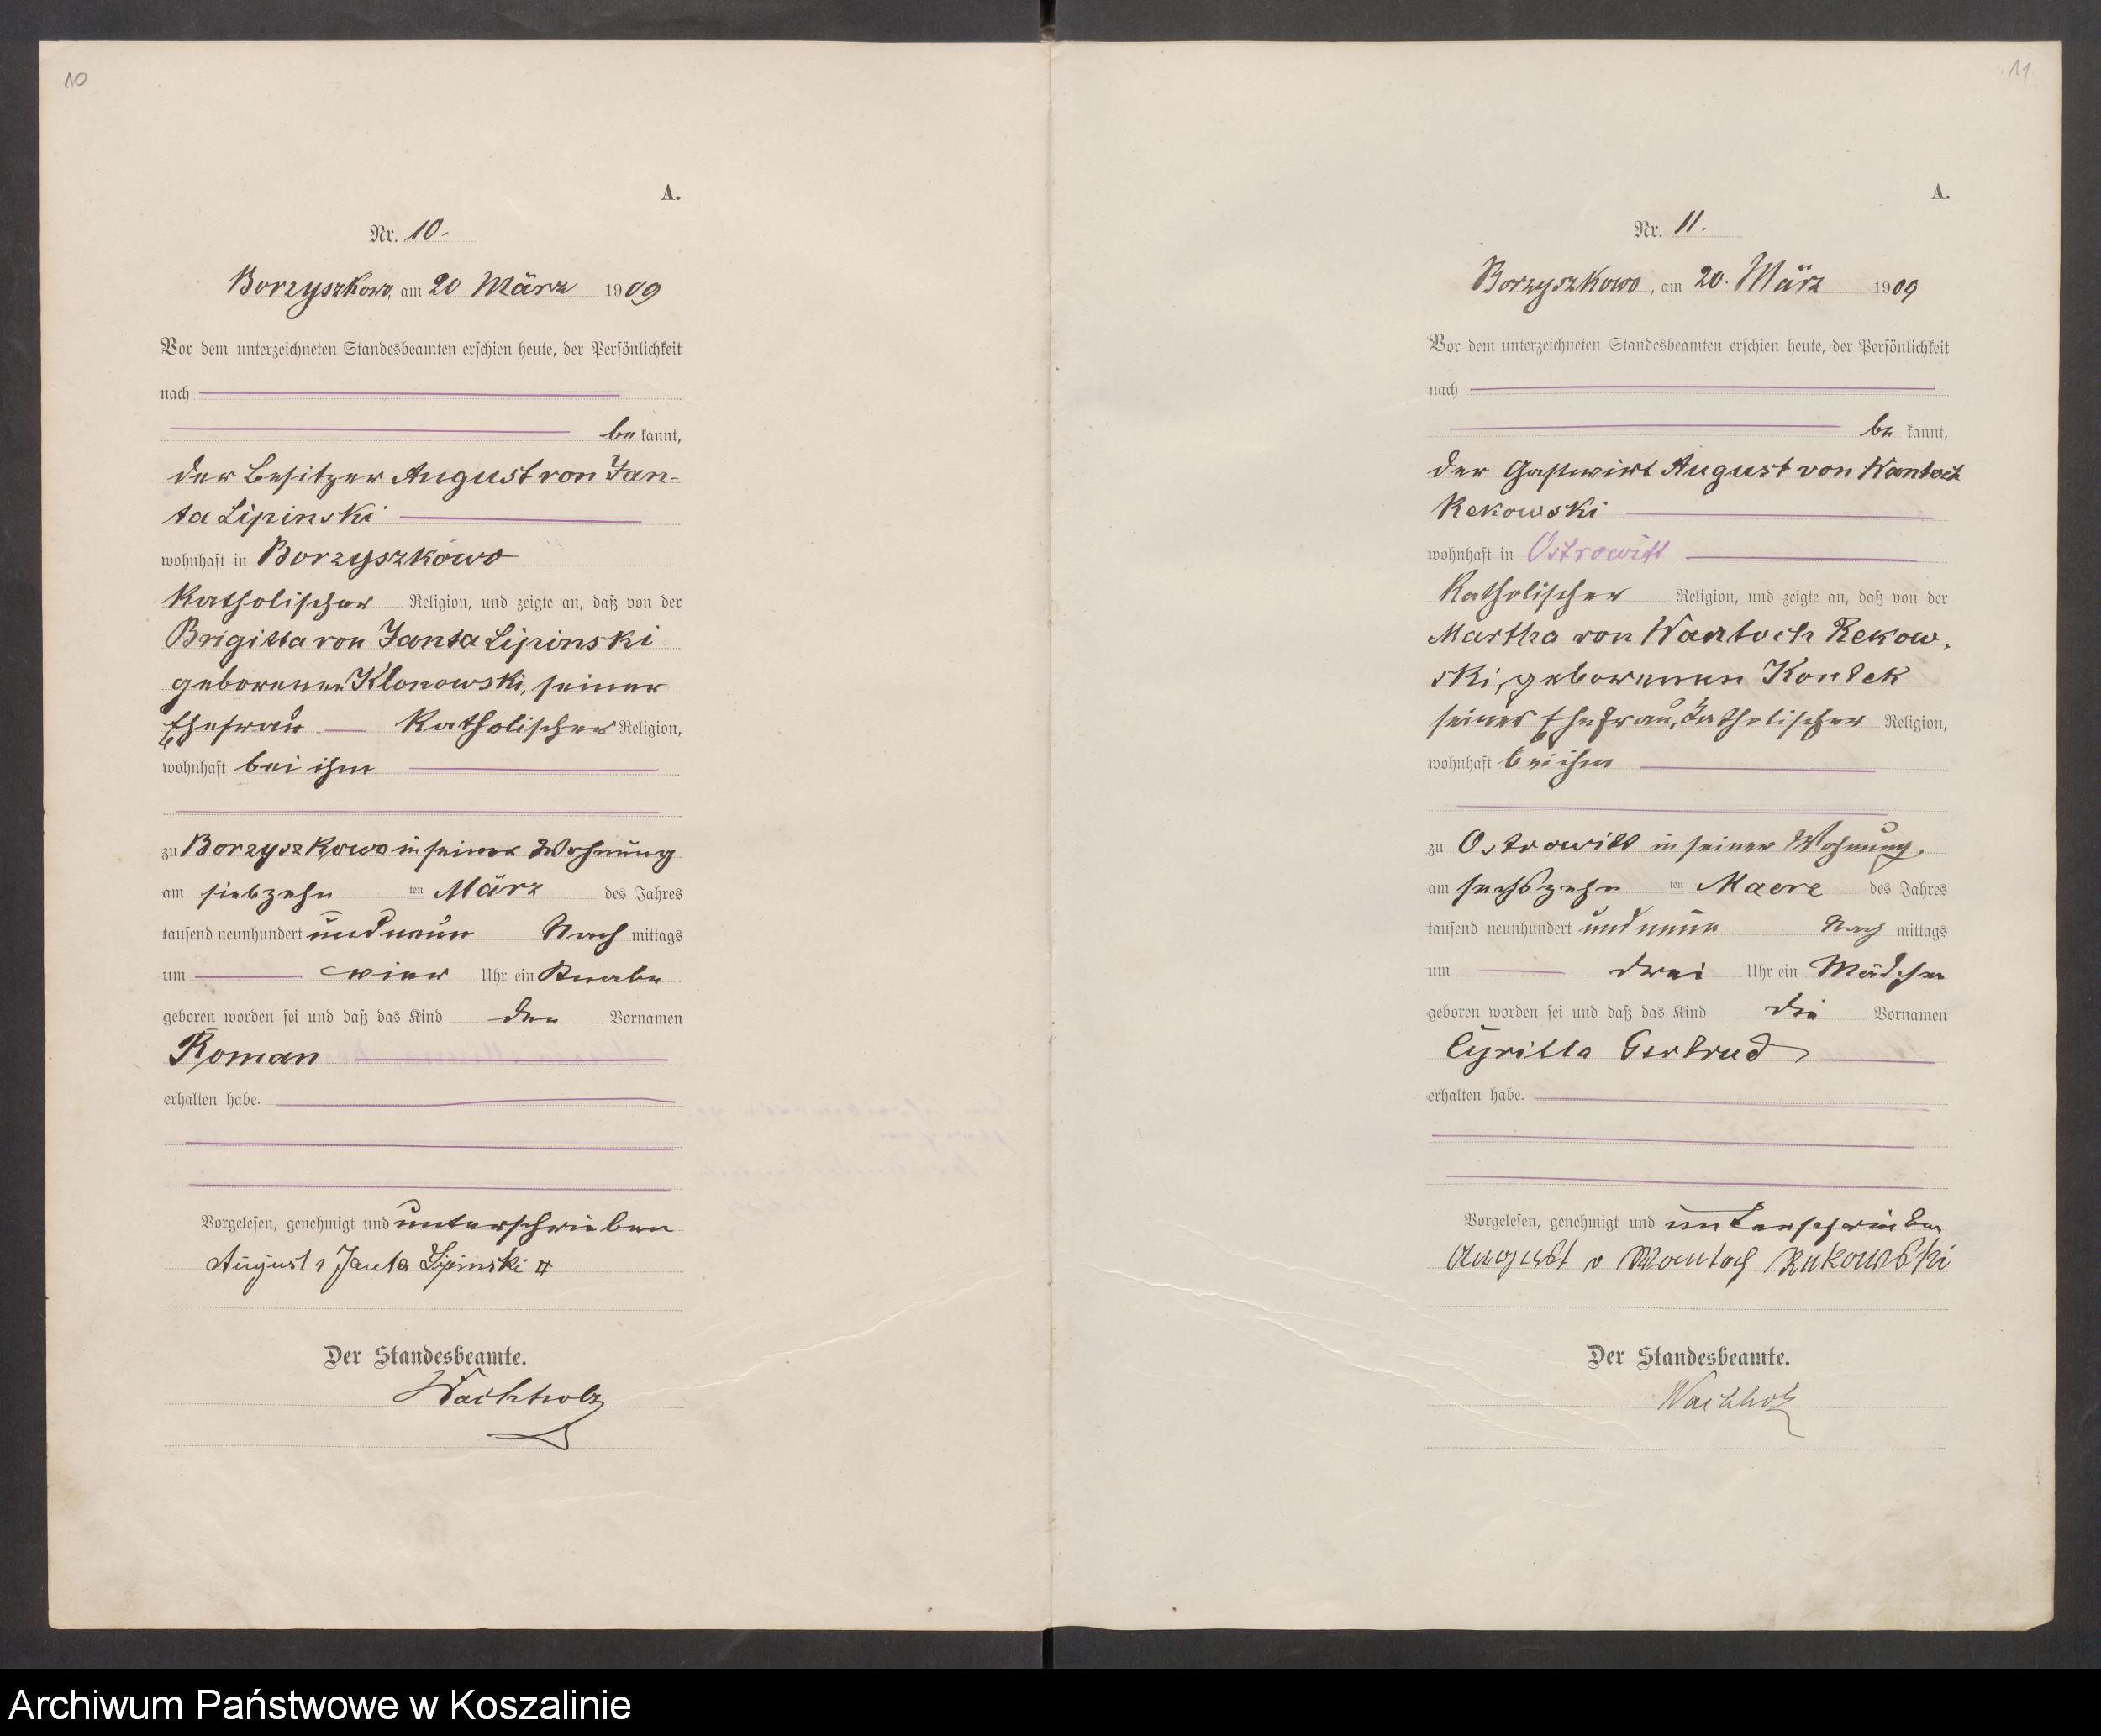 10
A.
Nr. 10.
Borzyszkowo, am 20 März 1909
Vor dem unterzeichneten Standesbeamten erschien heute, der Persönlichkeit
nach
be kannt,
der Besitzer August von Jan-
ta Lipinski
wohnhaft in Borzyszkowo
Katholischer Religion, und zeigte an, daß von der
Brigitta von Janta Lipinski
geborenen Klonowski, seiner
Ehefrau Katholischer Religion,
wohnhaft bei ihm
zu Borzyszkowo in seiner Wohnung
am siebzehn ten März des Jahres
tausend neunhundert und neun Nach mittags
um vier Uhr ein Knabe
geboren worden sei und daß das Kind den Vornamen
Roman
erhalten habe.
Vorgelesen, genehmigt und unterschrieben
August v Janta Lipinski
Der Standesbeamte.
Wachholz
11
A.
Nr. 11.
Borzyszkowo, am 20. März 1909
Vor dem unterzeichneten Standesbeamten erschien heute, der Persönlichkeit
nach
be kannt,
der Gastwirt August von Wantoch
Rekowski
wohnhaft in Ostrowitt
Katholischer Religion, und zeigte an, daß von der
Martha von Wantoch Rekow-
ski, geborenen Kondek
seiner Ehefrau, katholischer Religion,
wohnhaft bei ihm
zu Ostrowitt in seiner Wohnung,
am sechszehn ten Maerz des Jahres
tausend neunhundert und neun Nach mittags
um drei Uhr ein Mädchen
geboren worden sei und daß das Kind die Vornamen
Cyrilla Gertrud
erhalten habe.
Vorgelesen, genehmigt und unterschrieben
August v Wantoch Rekowski
Der Standesbeamte.
Wachholz
Archiwum Państwowe w Koszalinie